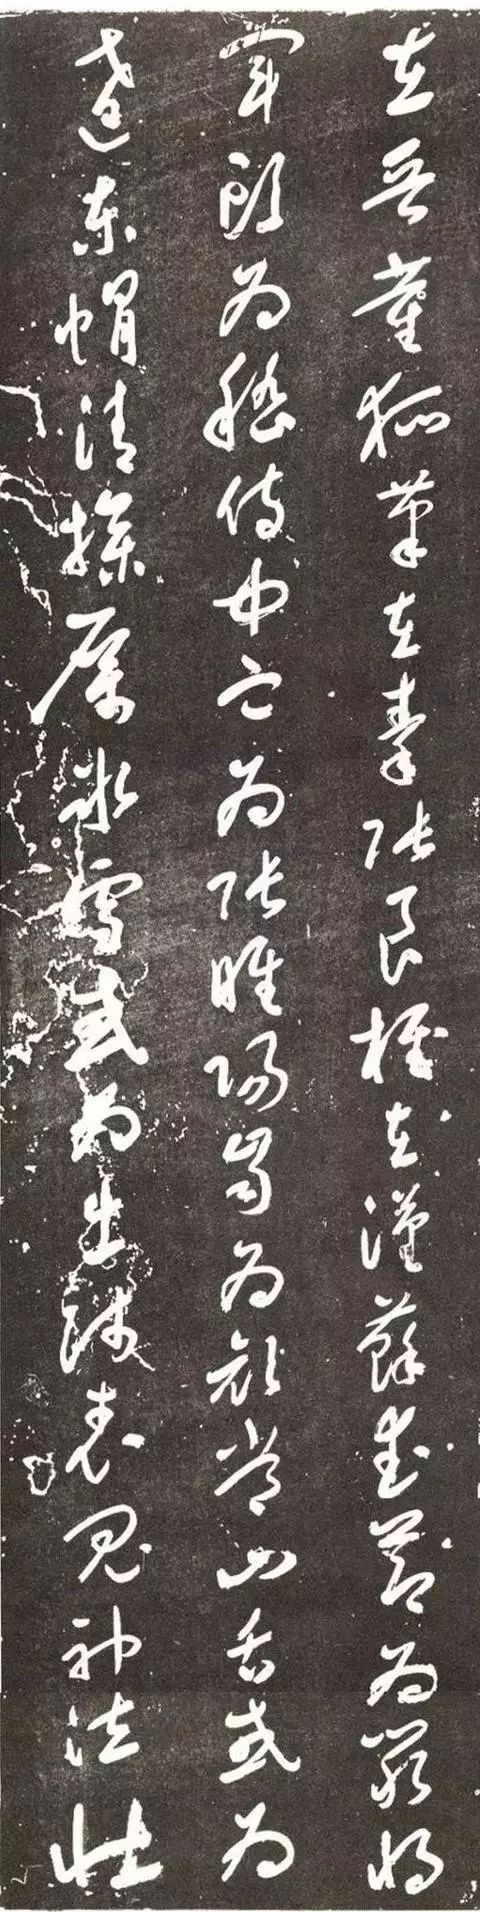 在晉董狐筆在秦張良椎在漢蘇武節為嚴將
軍頭為嵇侍中血為張睢陽齒為顏常山舌或為
遼東帽清操厲冰雪或為出師表鬼神泣壯